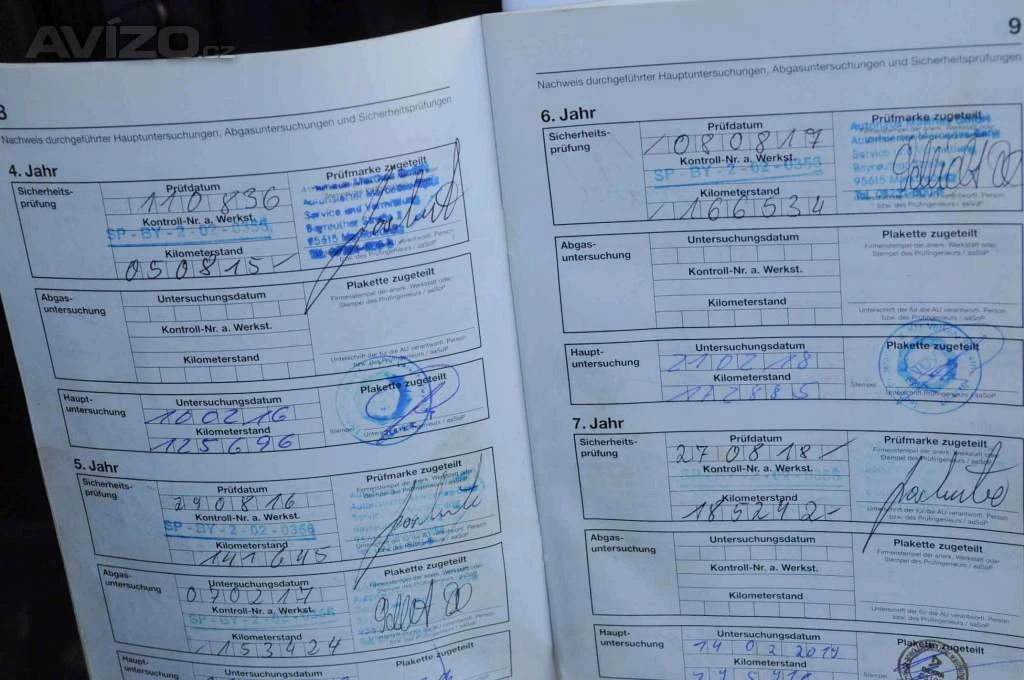 AVÍZO.cz
8
Nachweis durchgeführter Hauptuntersuchungen, Abgasuntersuchungen und Sicherheitsprüfungen
4. Jahr
Sicherheits-
prüfung
Prüfdatum
Prüfmarke zugeteilt
110836
Kontroll-Nr. a. Werkst.
SP - BY - 2 - 02 - 0356
Service und Vermittlung
Kilometerstand
050815-
bzw. des Prüfingenieurs / aaSoP
Abgas-
untersuchung
Untersuchungsdatum
Plakette zugeteilt
Firmenstempel der anerk. Werkstatt oder
Stempel des Prüfingenieurs / aaSoP
Kontroll-Nr. a. Werkst.
Kilometerstand
Unterschrift der für die AU verantwortl. Person
bzw. des Prüfingenieurs / aaSoP
Haupt-
untersuchung
Untersuchungsdatum
Plakette zugeteilt
100216
Kilometerstand
125696
Stempel
5. Jahr
Sicherheits-
prüfung
Prüfdatum
Prüfmarke zugeteilt
290816
Kontroll-Nr. a. Werkst.
SP - BY - 2 - 02 - 0356
Kilometerstand
141645
Abgas-
untersuchung
Untersuchungsdatum
Plakette zugeteilt
070217
Kontroll-Nr. a. Werkst.
SP - BY - 2 - 02 - 0356
Kilometerstand
153424
Haupt-
untersuchung
Untersuchungsdatum
Plakette zugeteilt
9
Nachweis durchgeführter Hauptuntersuchungen, Abgasuntersuchungen und Sicherheitsprüfungen
6. Jahr
Sicherheits-
prüfung
Prüfdatum
Prüfmarke zugeteilt
080817
Kontroll-Nr. a. Werkst.
SP - BY - 2 - 02 - 0356
Kilometerstand
166534
bzw. des Prüfingenieurs / aaSoP
Abgas-
untersuchung
Untersuchungsdatum
Plakette zugeteilt
Firmenstempel der anerk. Werkstatt oder
Stempel des Prüfingenieurs / aaSoP
Kontroll-Nr. a. Werkst.
Kilometerstand
Unterschrift der für die AU verantwortl. Person
bzw. des Prüfingenieurs / aaSoP
Haupt-
untersuchung
Untersuchungsdatum
Plakette zugeteilt
210218
Kilometerstand
172885
Stempel
7. Jahr
Sicherheits-
prüfung
Prüfdatum
Prüfmarke zugeteilt
270818-
Kontroll-Nr. a. Werkst.
Kilometerstand
185242-
Abgas-
untersuchung
Untersuchungsdatum
Plakette zugeteilt
Firmenstempel der anerk. Werkstatt oder
Stempel des Prüfingenieurs / aaSoP
Kontroll-Nr. a. Werkst.
Kilometerstand
Unterschrift der für die AU verantwortl. Person
bzw. des Prüfingenieurs / aaSoP
Haupt-
untersuchung
Untersuchungsdatum
Plakette zugeteilt
14 02 2019
Kilometerstand
Stempel